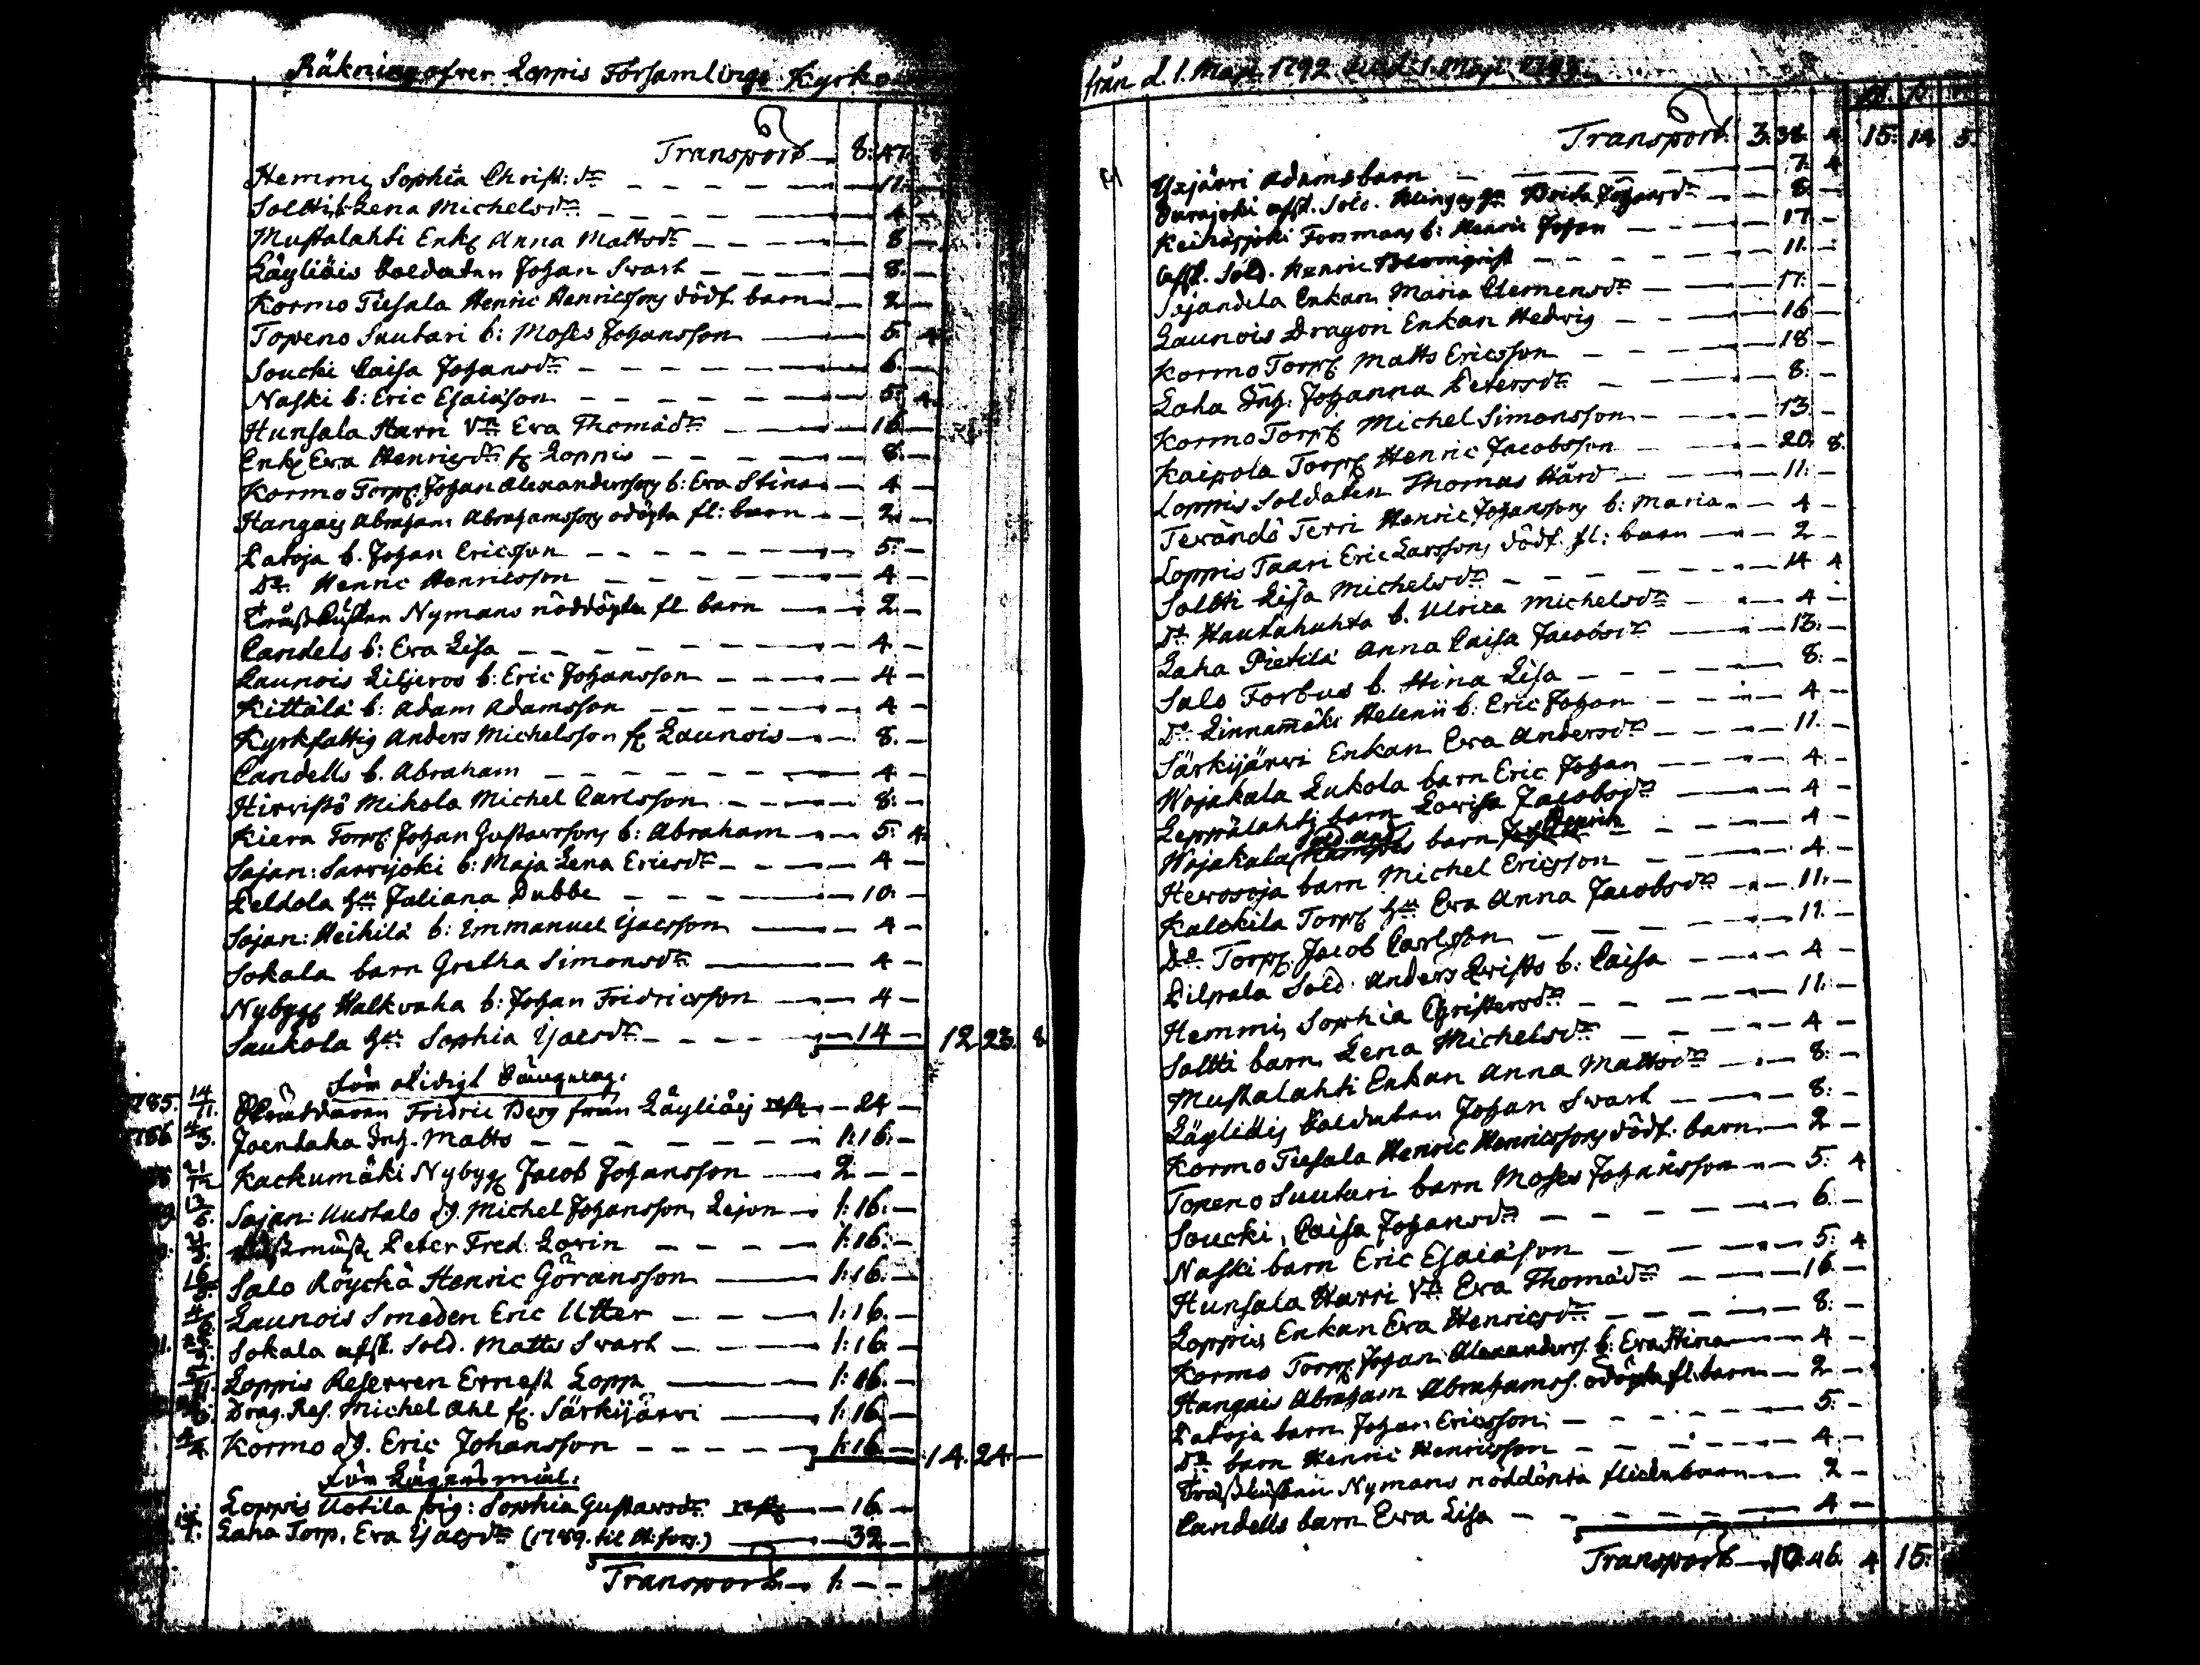 Räkning öfver Loppis Församlings Kyrko
Transport 8: 47.
Hemmi Sophia Christ: dr – 11. –
Soltti b: Lena Michelsdr – 4 –
Mustalahti Enk Anna Mattsdr – 8 –
Läyliäis Soldaten Johan Swart – 8. –
Kormo Tiesala Henric Henricssons dödf. barn – 2 –
Topeno Suutari b: Moses Johansson – 5: 4
Soucki Caisa Johansdr – 6. –
Naski b: Eric Esaiæson – 5: 4
Hunsala Harri Vn Eva Thomædr – 16 –
Enk Eva Henricsdr fr Loppis – 8. –
Kormo Torp. Johan Alexanderssons b: Eva Stina – 4 –
Hangais Abraham Abrahamssons odöpta fl: barn – 2 –
Latoja b. Johan Ericsson – 5: –
Do Henric Henricsson – 4 –
Nymans nöddöpta fl barn – 2 –
Candels b: Eva Lisa – 4 –
Launois Liljeros b: Eric Johansson – 4 –
Kittälä b: Adam Adamsson – 4 –
Kyrkfattig Anders Michelsson fr Launois – 8. –
Candells b. Abraham – 4 –
Hirvistö Mikola Michel Carlsson – 8: –
Kiera Torp Johan Gustavssons b: Abraham – 5: 4
Sajan: Sarrijoki b: Maja Lena Ericsdr – 4 –
Peldola Hu Juliana Dubbe – 10: –
Sajan: Heikilä b: Emmanuel Isacsson – 4 –
Sokala barn Gretha Simonsdr – 4 –
Nybygg Halkvaha b: Johan Fridricsson – 4 –
Saukola Hu: Sophia Isacsdr – 14 – 12 23. 8
För olidigt
1785. 14/11. Fridric Berg från Läyliäis rest – 24 –
1786 4/5. Joentaka Inh. Matts – 1: 16: –
Kackumäki Nybygg Jacob Johansson – 2 – –
Sajan: Uustalo dr. Michel Johansson Lejon – 1: 16: –
Peter Fred: Lovin – 1: 16: –
Salo Röyckä Henric Göransson – 1: 16: –
Launois Smeden Eric Utter – 1: 16. –
Sokala afsk. Sold. Matts Swart – 1: 16 –
Loppis Reserven Ernest Lopp – 1: 16. –
Drag. Res. Michel Ahl fr. Särkijärvi – 1: 16 –
Kormo dr. Eric Johansson – 1: 16 – 14. 24 –
För Lägersmål:
Loppis Uotila pig: Sophia Gustavsdr rest – 16 –
Laha Torp. Eva Isacsdr (1789. til A: fors.) – 32 –
Transport – 1: – –
från d. 1. Maji 1792 till d. 1. Maji 1793.
Transport 3: 38. 4. 15: 14 5.
Yxjärvi Adams barn – 7: 4
afsk. Sold. Klingas Johansdr – 8: –
Keihäsjoki Forsmans b: Henric Johan – 17 –
Afsk. Sold. Henric Blomqvist – 11. –
Enkan Maria Clemensdr – 17: –
Launois Dragon Enkan Hedvig – 16 –
Kormo Torp Matts Ericsson – 18 –
Laha Inh. Johanna Petersdr – 8: –
Kormo Torp Michel Simonsson – 13 –
Kaipola Torp Henric Jacobsson – 20 8.
Loppis Soldaten Thomas Hård – 11: –
Terändö Terri Henric Johanssons b: Maria – 4 –
Loppis Taari Eric Larssons dödf. fl: barn – 2 –
Soltti Lisa Michelsdr – 14 4
Do Hautahuhta b. Ulrica Michelsdr – 4 –
Laha Pietilä Anna Caisa Jacobsdr – 13: –
Salo Forbus b. Stina Lisa – 8: –
Do Linnamäki Helenii b: Eric Johan – 4 –
Särkijärvi Enkan Eva Andersdr – 11. –
Wojakala Lukola barn Eric Johan – 4 –
Leppälahti barn Lovisa Jacobsdr – 4 –
Wojakala barn Henrik – 4 –
Hevosoja barn Michel Ericsson – 4 –
Kalckila Torp Hu Eva Anna Jacobsdr – 11: –
Do Torp Jacob Carlsson – 11 –
Pilpala Sold. Anders Qvists b: Caisa – 4 –
Hemmi Sophia Christersdr – 11: –
Soltti barn Lena Michelsdr – 4 –
Mustalahti Enkan Anna Mattsdr – 8: –
Läyliäis Soldaten Johan Swart – 8: –
Kormo Tiesala Henric Henricssons dödf: barn – 2 –
Topeno Suutari barn Moses Johansson – 5: 4
Soucki, Caisa Johansdr – 6. –
Naski barn Eric Esaiæson – 5: 4
Hunsala Harri Vn Eva Thomædr – 16 –
Loppis Enkan Eva Henricsdr – 8: –
Kormo Torp Johan Alexanders. b: Eva Stina – 4 –
Hangais Abraham Abrahams. odöpta fl: barn – 2 –
Latoja barn Johan Ericsson – 5: –
Do barn Henric Henricsson – 4 –
Nymans nöddöpta flickebarn – 2 –
Candells barn Eva Lisa – 4 –
Transport – 10: 46. 4 15: